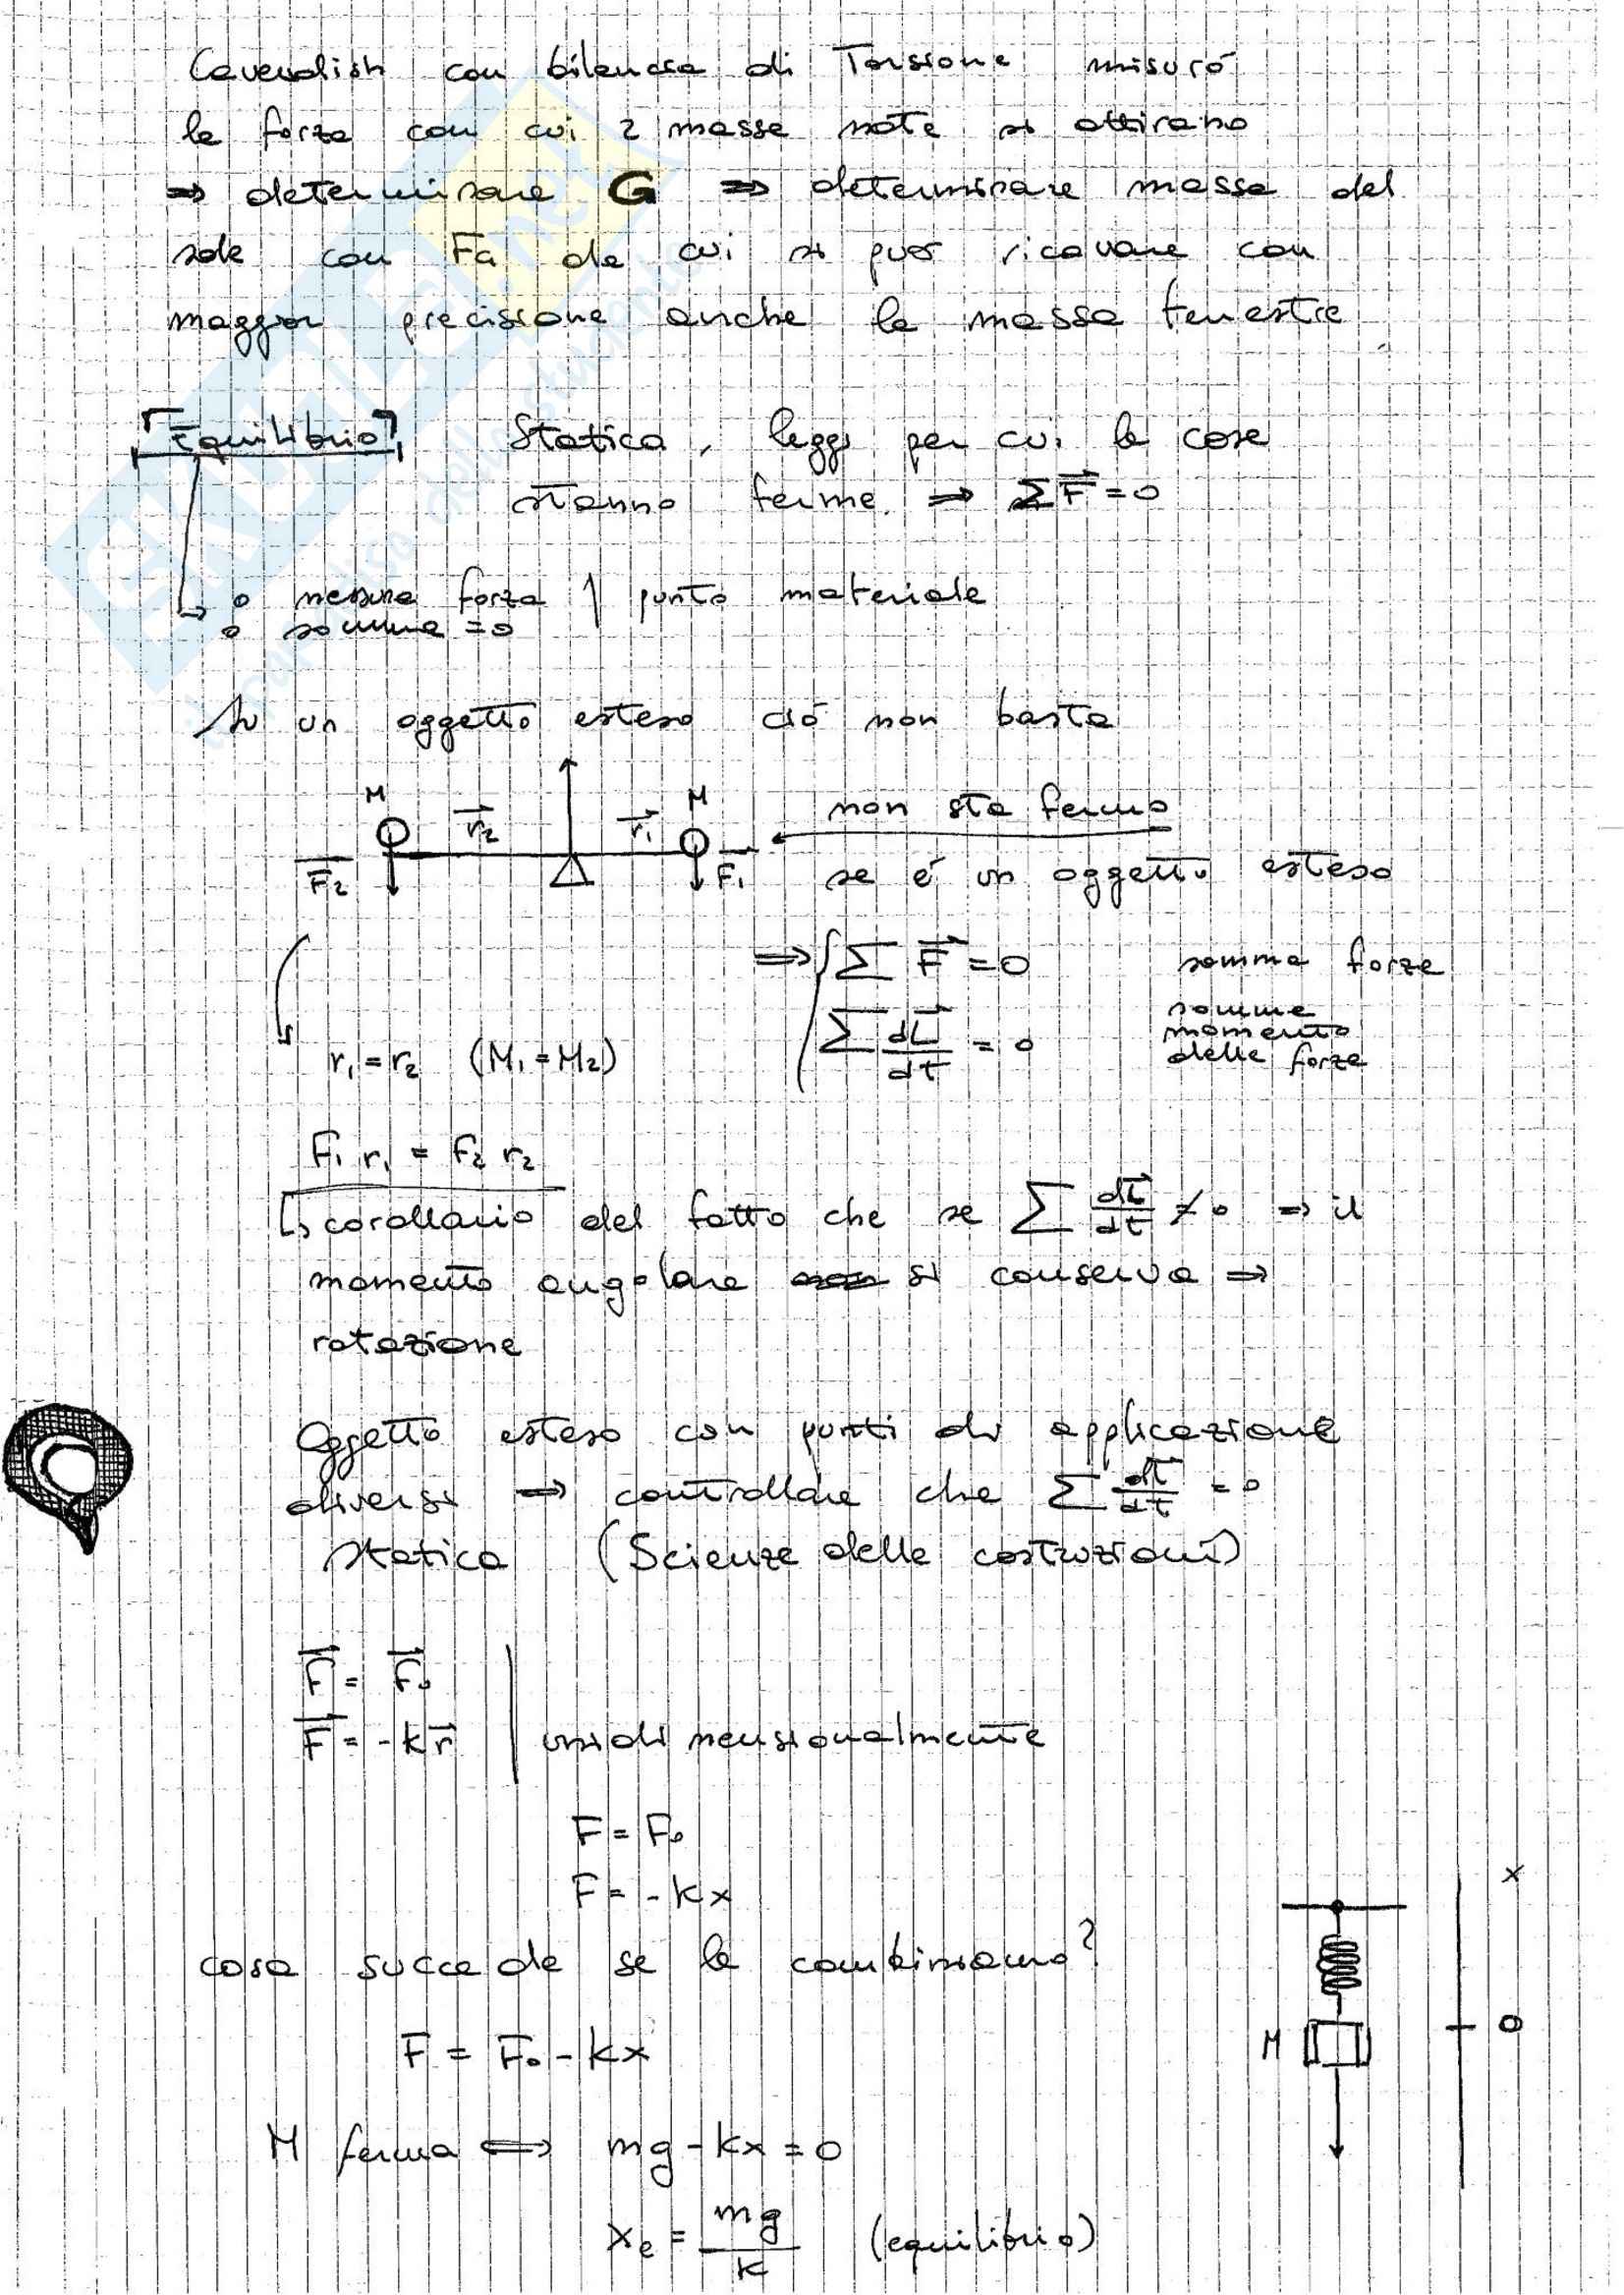 Cavendish con bilancia di Torsione misurò
la forza con cui 2 masse note si attirano
⇒ determinare G ⇒ determinare massa del
sole con Fa da cui si puo' ricavare con
maggior precisione anche la massa terrestre
Equilibrio Statica, leggi per cui le cose
stanno ferme. ⇒ ΣF⃗ = 0
nessuna forza punto materiale
somma = 0
Su un oggetto esteso ciò non basta
M M
r⃗₂ r⃗₁ non sta fermo
F⃗₂ F⃗₁ se é un oggetto esteso
⇒ Σ F⃗ = 0 somma forze
Σ dL⃗/dt = 0 somma momento delle forze
r₁ = r₂ (M₁ = M₂)
F₁ r₁ = F₂ r₂
↳ corollario del fatto che se Σ dL⃗/dt ≠ 0 ⇒ il
momento angolare si conserva ⇒
rotazione
Oggetto esteso con punti di applicazione
diversi ⇒ controllare che Σ dL⃗/dt = 0
statica (Scienze delle costruzioni)
F⃗ = F⃗₀
F⃗ = -k r⃗ unidimensionalmente
F = F₀
F = -kx
x
cosa succede se le combiniamo?
F = F₀ - kx
M 0
M ferma ⟺ mg - kx = 0
xₑ = mg/k (equilibrio)